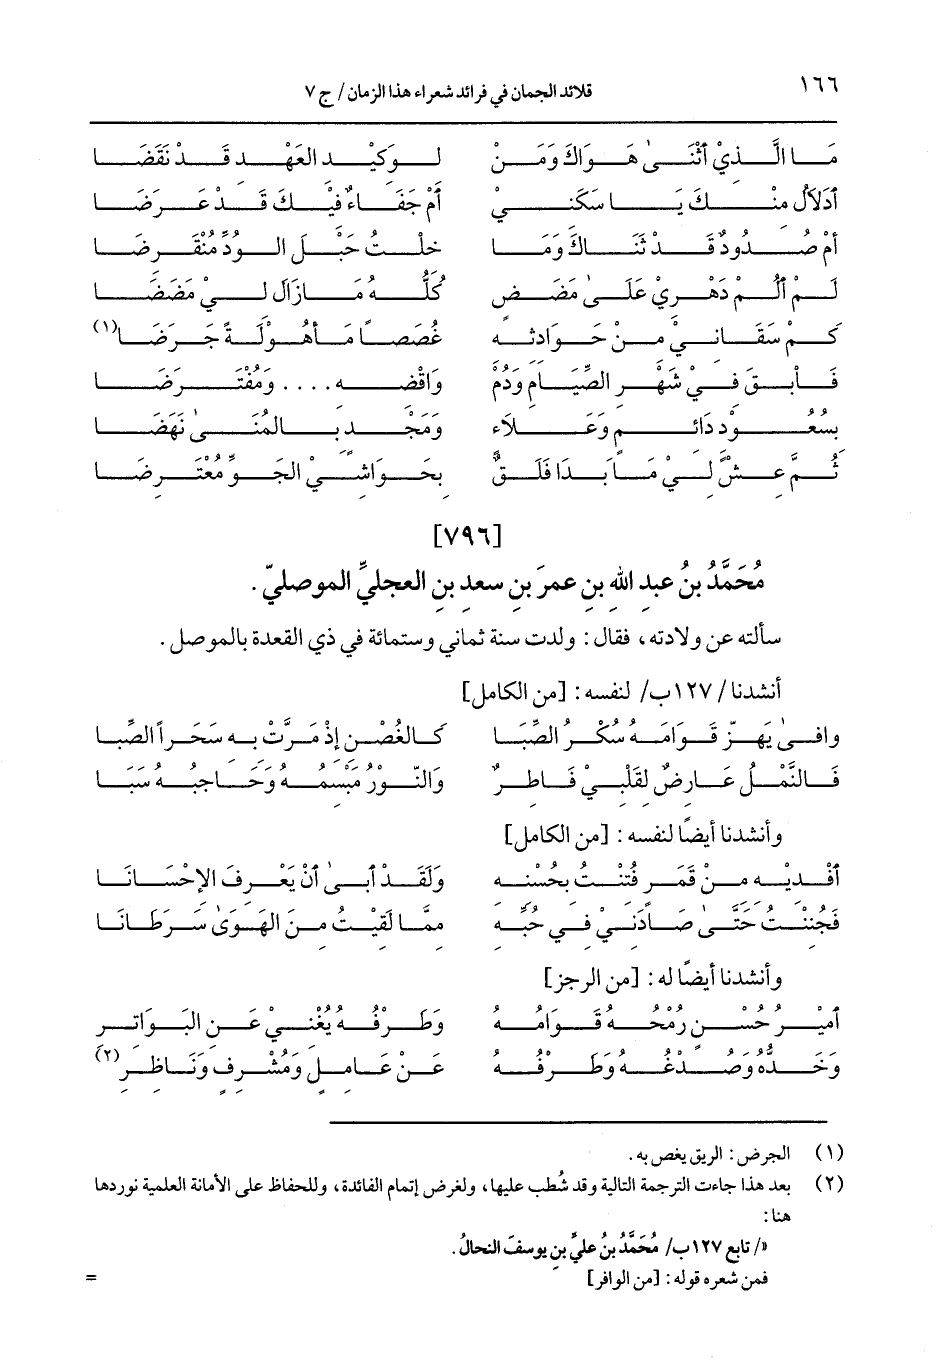 ١٦٦ قلائد الجمان في فرائد شعراء هذا الزمان/ ج٧
مَا الَّذيْ أثْنَىٰ هَوَاكَ وَمَنْ لوَكيْدِ العَهْدِ قَدْ نَقَضَا
أدَلاَلٌ منْكَ يَا سَكَنيْ أمْ جَفَاءٌ فيْكَ قَدْ عَرَضَا
أمْ صُدُودٌ قَدْ ثَنَاكَ وَمَا خلْتُ حَبْلَ الوُدِّ مُنْقَرِضَا
لَمْ ألُمْ دَهْريْ عَلَىٰ مَضَضٍ كُلُّهُ مَازَالَ ليْ مَضَضَا
كَمْ سَقَانيْ منْ حَوَادثه غُصَصًا مَأهُوْلَةً جَرَضَا(١)
فَأبقَ فيْ شَهْرِ الصِّيَامِ وَدُمْ وَاقْضه .... وَمُفْتَرَضَا
بسُعُوْدٍ دَائمٍ وَعَلاَءٍ وَمَجْدٍ بالمُنَىٰ نَهَضَا
ثُمَّ عشْ ليْ مَا بَدَا فَلَقٌ بحَوَاشيْ الجَوِّ مُعْتَرِضَا
[٧٩٦]
مُحَمَّدُ بنُ عبدِ اللهِ بنِ عمرَ بنِ سعدِ بنِ العجليِّ الموصليّ.
سألته عن ولادته، فقال: ولدت سنة ثماني وستمائة في ذي القعدة بالموصل.
أنشدنا /١٢٧ب/ لنفسه: [من الكامل]
وافىٰ يَهزّ قَوَامَهُ سُكْرُ الصِّبَا كَالغُصْنِ إذْ مَرَّتْ بِه سَحَراً الصَّبا
فَالنَّمْلُ عَارِضُ لقَلْبيْ فَاطِرٌ وَالنّورُ مَبْسمُهُ وَحَاجبُهُ سَبَا
وأنشدنا أيضًا لنفسه: [من الكامل]
أفْديْه منْ قَمَرٍ فُتنْتُ بحُسْنه وَلَقَدْ أبىٰ أنْ يَعْرفَ الإحْسَانَا
فَجُننْتُ حَتَّىٰ صَادَنيْ في حُبِّه ممَّا لَقيْتُ منَ الهَوَىٰ سَرَطَانَا
وأنشدنا أيضًا له: [من الرجز]
أميْرُ حُسْنٍ رُمْحُهُ قَوَامُهُ وَطَرْفُهُ يُغْنيْ عَنِ البَوَاتِرِ
وَخَدُّه وَصُدْغُهُ وَطَرْفُهُ عَنْ عَاملٍ وَمُشْرفٍ وَنَاظر(٢)
(١) الجرض: الريق يغص به.
(٢) بعد هذا جاءت الترجمة التالية وقد شُطب عليها، ولغرض إتمام الفائدة، وللحفاظ على الأمانة العلمية نوردها
هنا:
«/ تابع ١٢٧ب/ مُحَمَّدُ بنُ عليِّ بنِ يوسفَ النحالُ.
فمن شعره قوله: [من الوافر] =